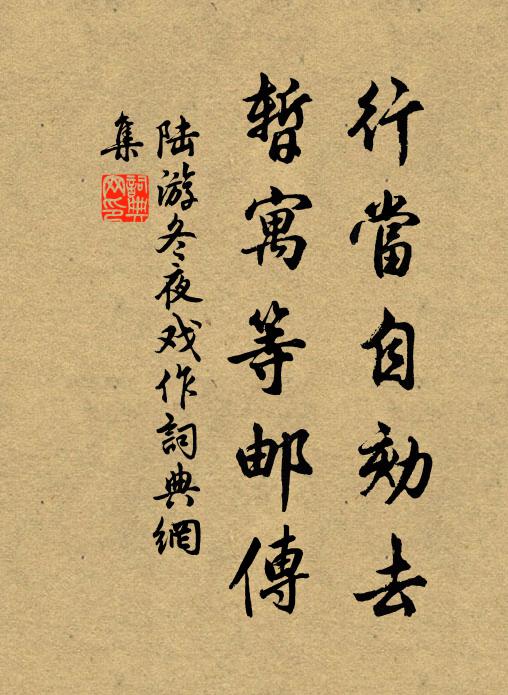 行當自劾去
暫寓等邮傳
陆游冬夜戏作詞典網
集
詞典
网印